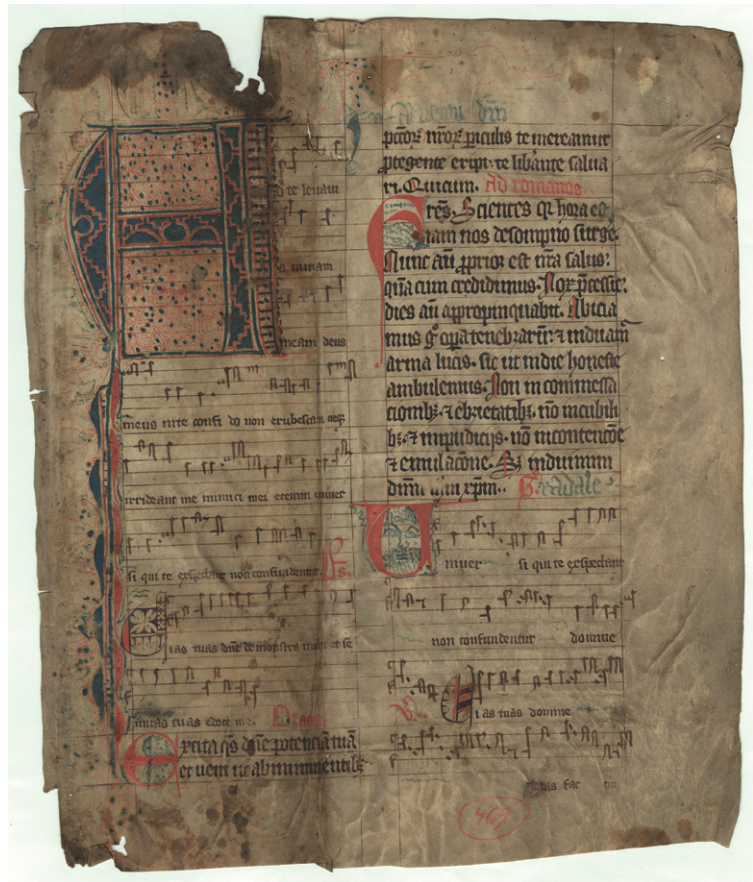 d te levavi
animam
meam deus
meus in te confi do non erubescam neq3
irrideant me inimici mei etenim univer
si qui te exspectant non confundentur. Ps.
ias tuas dn̄e demonstra michi et se
mitas tuas edoce me.
Excita q̄s dn̄e potenciā tuā
et veni ut ab imminentib3
pctōꝝ nr̄oꝝ ꝑiculis te mereamur
ꝓtegente eripi. te libānte salva
ri. Qui cum. Ad romanos.
Frēs. Scientes qꝛ hora est
iam nos de sompno surgē
Nunc aū ꝓprior est nr̄a salus:
qͣꝫ cum credidimus. Nox ꝑcessit:
dies aū appropinquabit. Abicia
mus gͦ oꝑa tenebraꝝ: ⁊ induamʳ
arma lucis. sic ut in die honeste
ambulemus. Non in comessa
cionib3 ⁊ ebrietatib3. nō in cubili
b3 ⁊ impudicijs. nō in contencōe
⁊ emulacōne. S3 induimini
dn̄m ihm xp̄m. Gradale
Univer si qui te exspectant
non confundentur domine
V. Vias tuas domine
tas fac
469